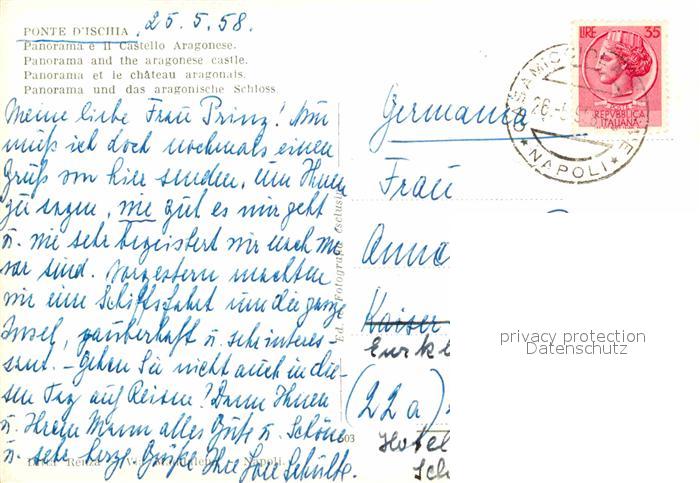 25.5.58.
PONTE D'ISCHIA
Panorama e il Castello Aragonese.
Panorama and the aragonese castle.
Panorama et le château aragonais.
Panorama und das aragonische Schloss.
Meine liebe Frau Prinz! Nun
muß ich doch nochmals einen
Gruß von hier senden, um Ihnen
zu sagen, wie gut es mir geht
u. wie sehr begeistert wir nach wie
vor sind. Vorgestern machten
wir eine Schiffsfahrt um die ganze
Insel, zauberhaft u. sehr interes-
sant. - Gehen Sie nicht auch in die-
sen Tag auf Reisen? Dann Ihnen
u. Ihrem Mann alles Gute u. Schöne
u. sehr herzl. Grüße Ihre Schülte.
Ditta Renza Napoli.
Ed. Fotografia esclusiva
603
LIRE 35
REPVBBLICA
ITALIANA
CASAMICCIOLA TERME
26
NAPOLI
Germania
Frau
Anna
Kaiser
(22a)
Hotel
Sch
privacy protection
Datenschutz